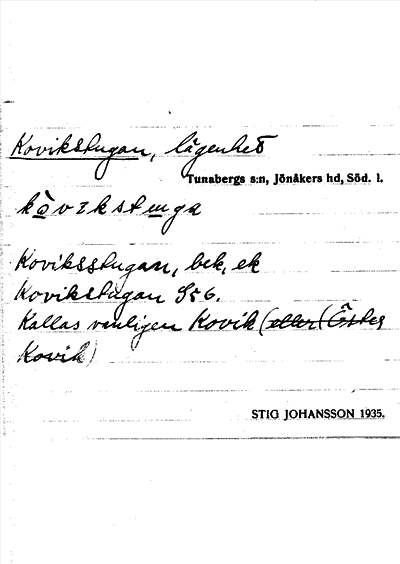 Kovikstugan, lägenhet
Tunabergs s:n, Jönåkers hd, Söd. l.
Koviksstugan, bek, ek
Kovikstugan S56.
Kallas vanligen Kovik (eller (Öster
Kovik)
STIG JOHANSSON 1935.